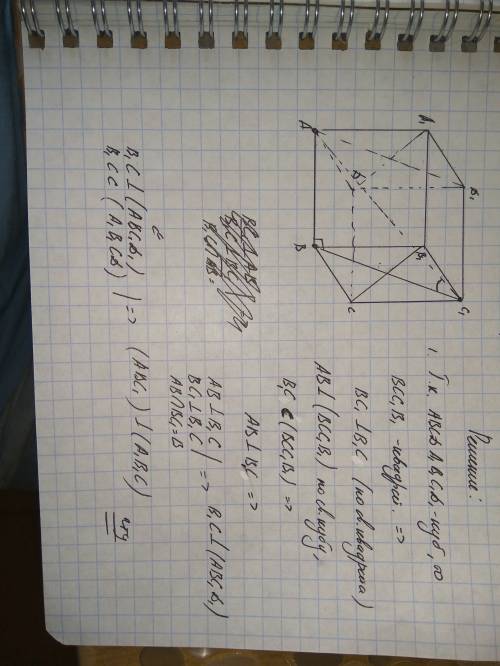 Решение:
1. Т.к. ABCDA₁B₁C₁D₁ - куб, то
BCC₁B₁ - квадрат. =>
BC₁ ⊥ B₁C (по св. квадрата)
AB ⊥ (BCC₁B₁) по св. куба,
B₁C ⊂ (BCC₁B₁) =>
AB ⊥ B₁C =>
AB ⊥ B₁C
BC₁ ⊥ B₁C | => B₁C ⊥ (ABC₁D₁)
AB ∩ BC₁ = B
B₁C ⊥ (ABC₁D₁)
B₁C ⊂ (A₁B₁CD) | => (ABC₁) ⊥ (A₁B₁C)
чтд
A₁
B₁
C₁
D₁
A
B
C
D